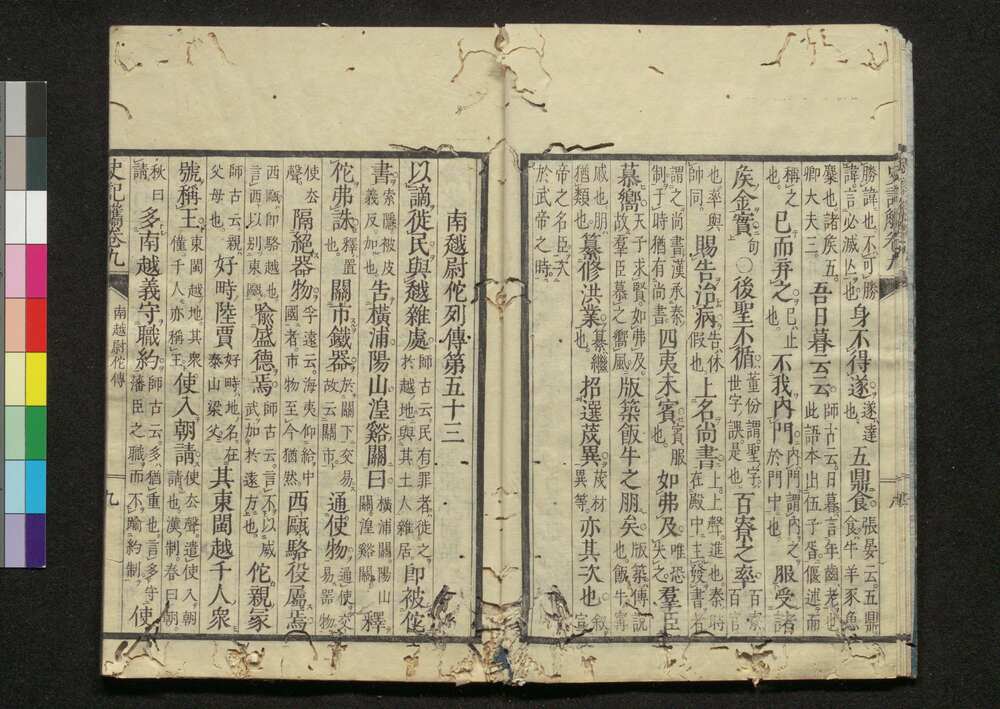 勝諱也不可勝諱言必滅亾也身不得遂遂達也五鼎食張晏云五鼎食牛羊豕魚
麋也諸矦五卿大夫三吾日暮云云師古云日暮言年齒老也此語本出伍子胥偃述而
稱之也已而弃之已止也不我内門内門謂内之於門中也服受諸
矦金實句○後聖不循董份謂聖字世字誤是也百寮之率百寮百官
也率與師同賜告治病告休假也上名尚書上上聲進也秦時在殿中主發書者
謂之尚書漢承秦制于時猶有尚書四夷未賓賓服也如弗及唯恐失之羣臣
慕嚮天子求賢如弗及故羣臣慕之嚮風版築飯牛之朋矣版築傅說也飯牛甯
戚也朋猶類也纂修洪業纂繼也招選茂異茂材異等亦其次也敘宣
帝之名臣次於武帝之時
南越尉佗列傳第五十三
以謫徙民與越雜處師古云民有罪者徙之於越地與其土人雜居即被佗
書索隱被皮義反加也告橫浦陽山湟谿關曰橫浦關陽山關湟谿關釋
佗弗誅釋置也關市鐵器於關下交易故云關市通使物通使交易器物
使去聲隔絕器物子遠云海夷仰給中國者市物至今猶然西甌駱役屬焉
西甌即駱越也言西以別東甌喩盛德焉師古云言不以威武加於遠方也佗親冢
師古云親父母也好畤陸賈好畤地名在泰山梁父其東閩越千人衆
號稱王東閩越地其衆僅千人亦稱王使入朝請使去聲遣使入朝請也漢制春曰朝
秋曰請多南越義守職約師古云多猶重也言多守藩臣之職而不踰約制使
史記觽卷九
南越尉佗傳
九